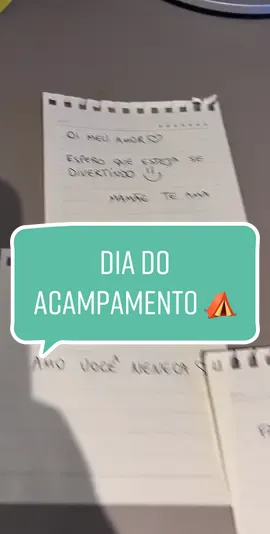 OI MEU AMOR♡
ESPERO QUE ESTEJA SE
DIVERTINDO !!
MAMÃE TE AMA
DIA DO
ACAMPAMENTO ⛺
AMO VOCÊ NENECA ♡